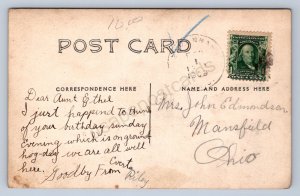 1000
POST CARD
CORRESPONDENCE HERE
NAME AND ADDRESS HERE
Dear Aunt Ethel
I just happind to think
of your birthday sunday
Evening which is on ground
hog day we are all well
here.
Goodby From Evert
Riley
Mrs. John Edmondson
Mansfield
Ohio